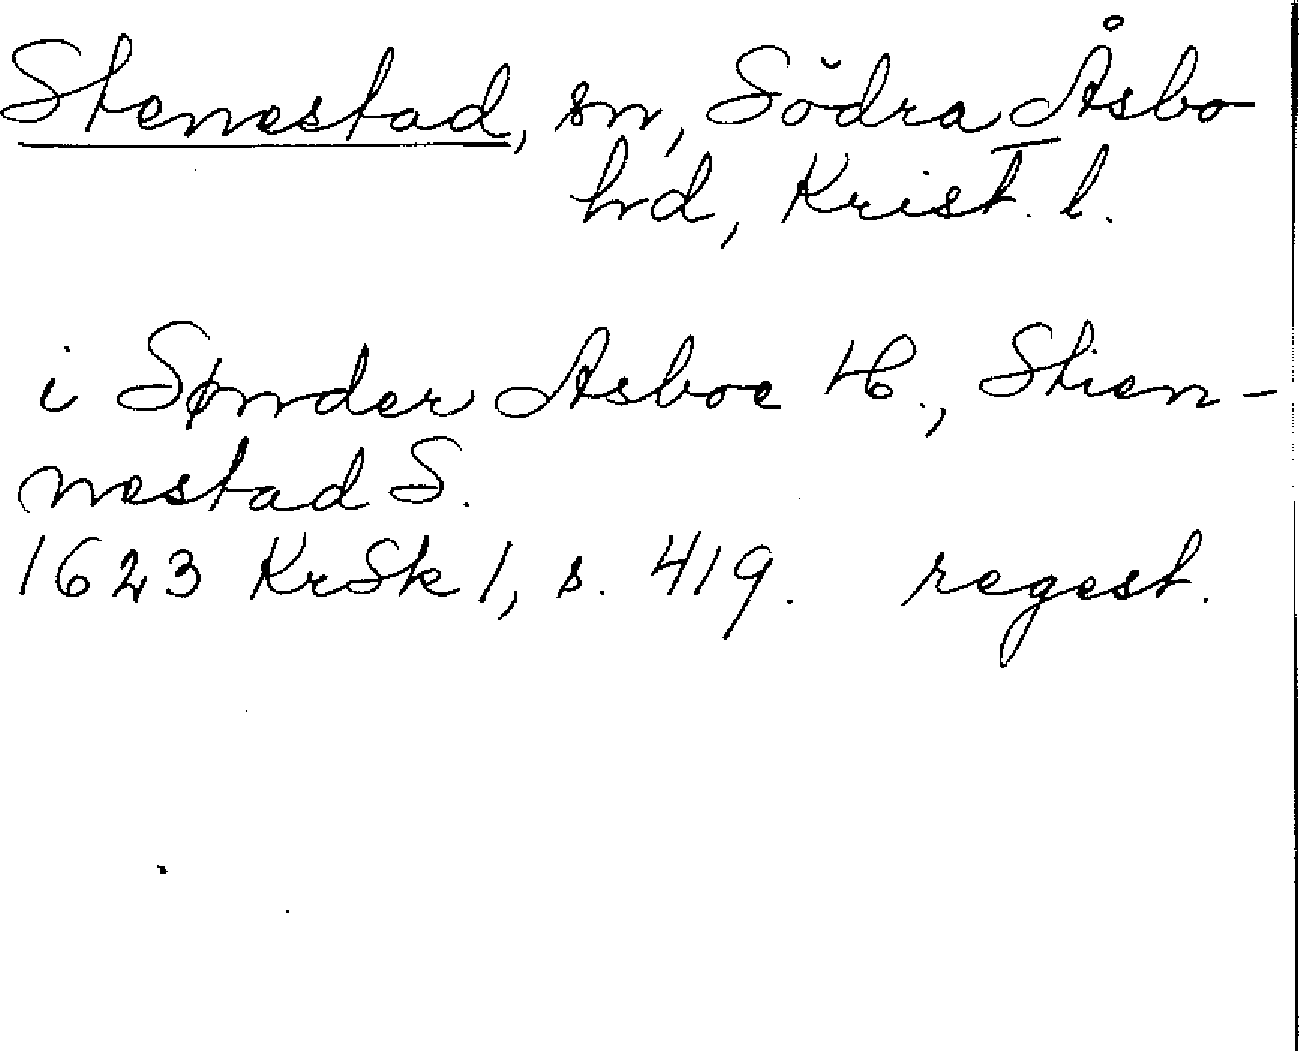 Stenestad, sn, Södra Åsbo
hd, Krist. l.
i Sønder Asboe H., Stien-
nestad S.
1623 KrSk 1, s. 419. regest.